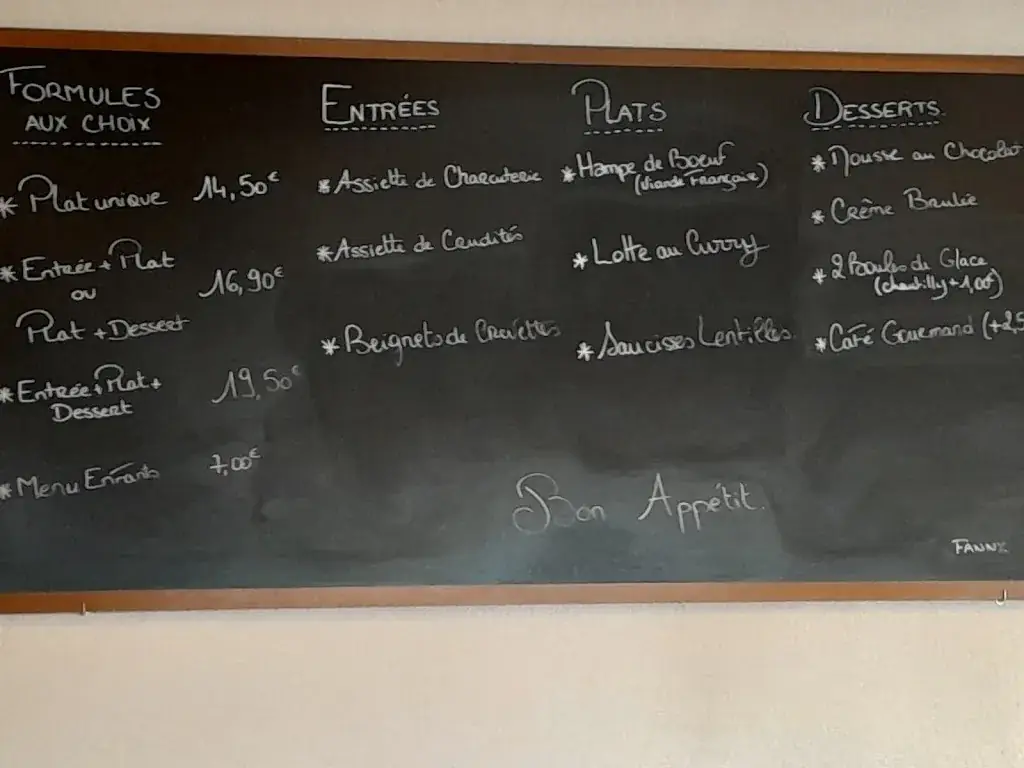 FORMULES
AUX CHOIX
* Plat unique 14,50€
* Entrée + Plat
ou 16,90€
Plat + Dessert
* Entrée + Plat +
Dessert 19,50€
* Menu Enfants 7,00€
ENTRÉES
* Assiette de Charcuterie
* Assiette de Crudités
* Beignets de Crevettes
PLATS
* Hampe de Boeuf
(Viande Française)
* Lotte au Curry
* Saucisses Lentilles
DESSERTS
* Mousse au Chocolat
* Crème Brulée
* 2 Boules de Glace
(chantilly + 1,00€)
* Café Gourmand (+2,5
Bon Appétit.
FANNY